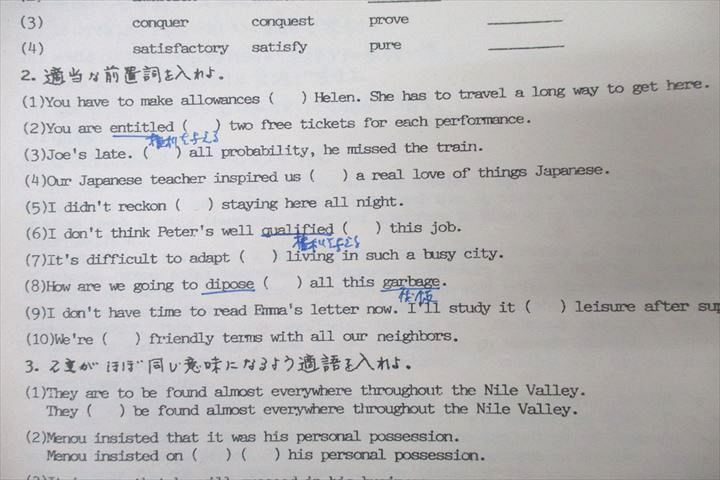 (3) conquer conquest prove
(4) satisfactory satisfy pure
2. 適当な前置詞を入れよ。
(1)You have to make allowances (  ) Helen. She has to travel a long way to get here.
(2)You are entitled (  ) two free tickets for each performance.
権利を与える
(3)Joe's late. (  ) all probability, he missed the train.
(4)Our Japanese teacher inspired us (  ) a real love of things Japanese.
(5)I didn't reckon (  ) staying here all night.
(6)I don't think Peter's well qualified (  ) this job.
権利を与える
(7)It's difficult to adapt (  ) living in such a busy city.
(8)How are we going to dipose (  ) all this garbage.
(9)I don't have time to read Emma's letter now. I'll study it (  ) leisure after sup
(10)We're (  ) friendly terms with all our neighbors.
3. 2文がほぼ同じ意味になるよう適語を入れよ。
(1)They are to be found almost everywhere throughout the Nile Valley.
They (  ) be found almost everywhere throughout the Nile Valley.
(2)Menou insisted that it was his personal possession.
Menou insisted on (  ) (  ) his personal possession.